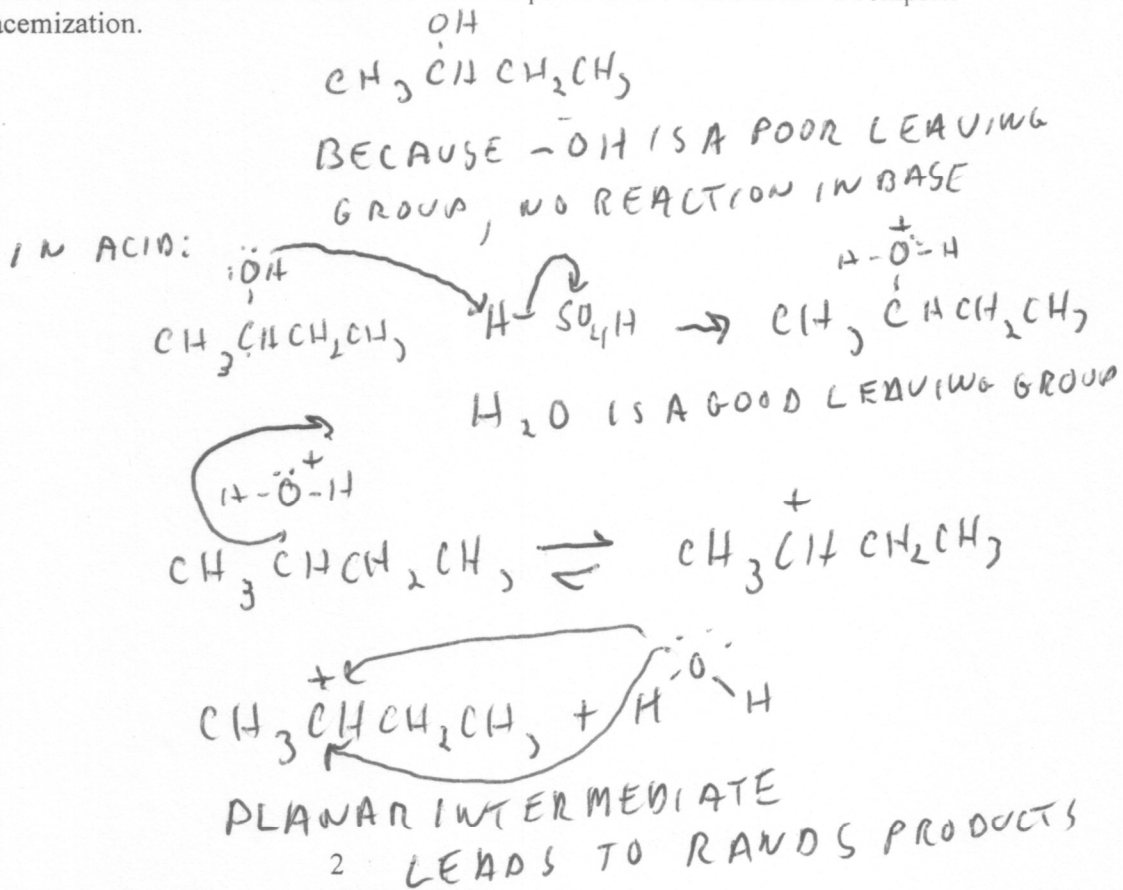 acemization.
OH
CH3CHCH2CH3
BECAUSE -OH IS A POOR LEAVING
GROUP, NO REACTION IN BASE
IN ACID:
:ÖH
+
H-Ö-H
CH3CHCH2CH3 H-SO4H → CH3CHCH2CH3
H2O IS A GOOD LEAVING GROUP
+
H-Ö-H
+
CH3CHCH2CH3 ⇌ CH3CHCH2CH3
+
O
CH3CHCH2CH3 + H H
PLANAR INTERMEDIATE
2 LEADS TO R AND S PRODUCTS